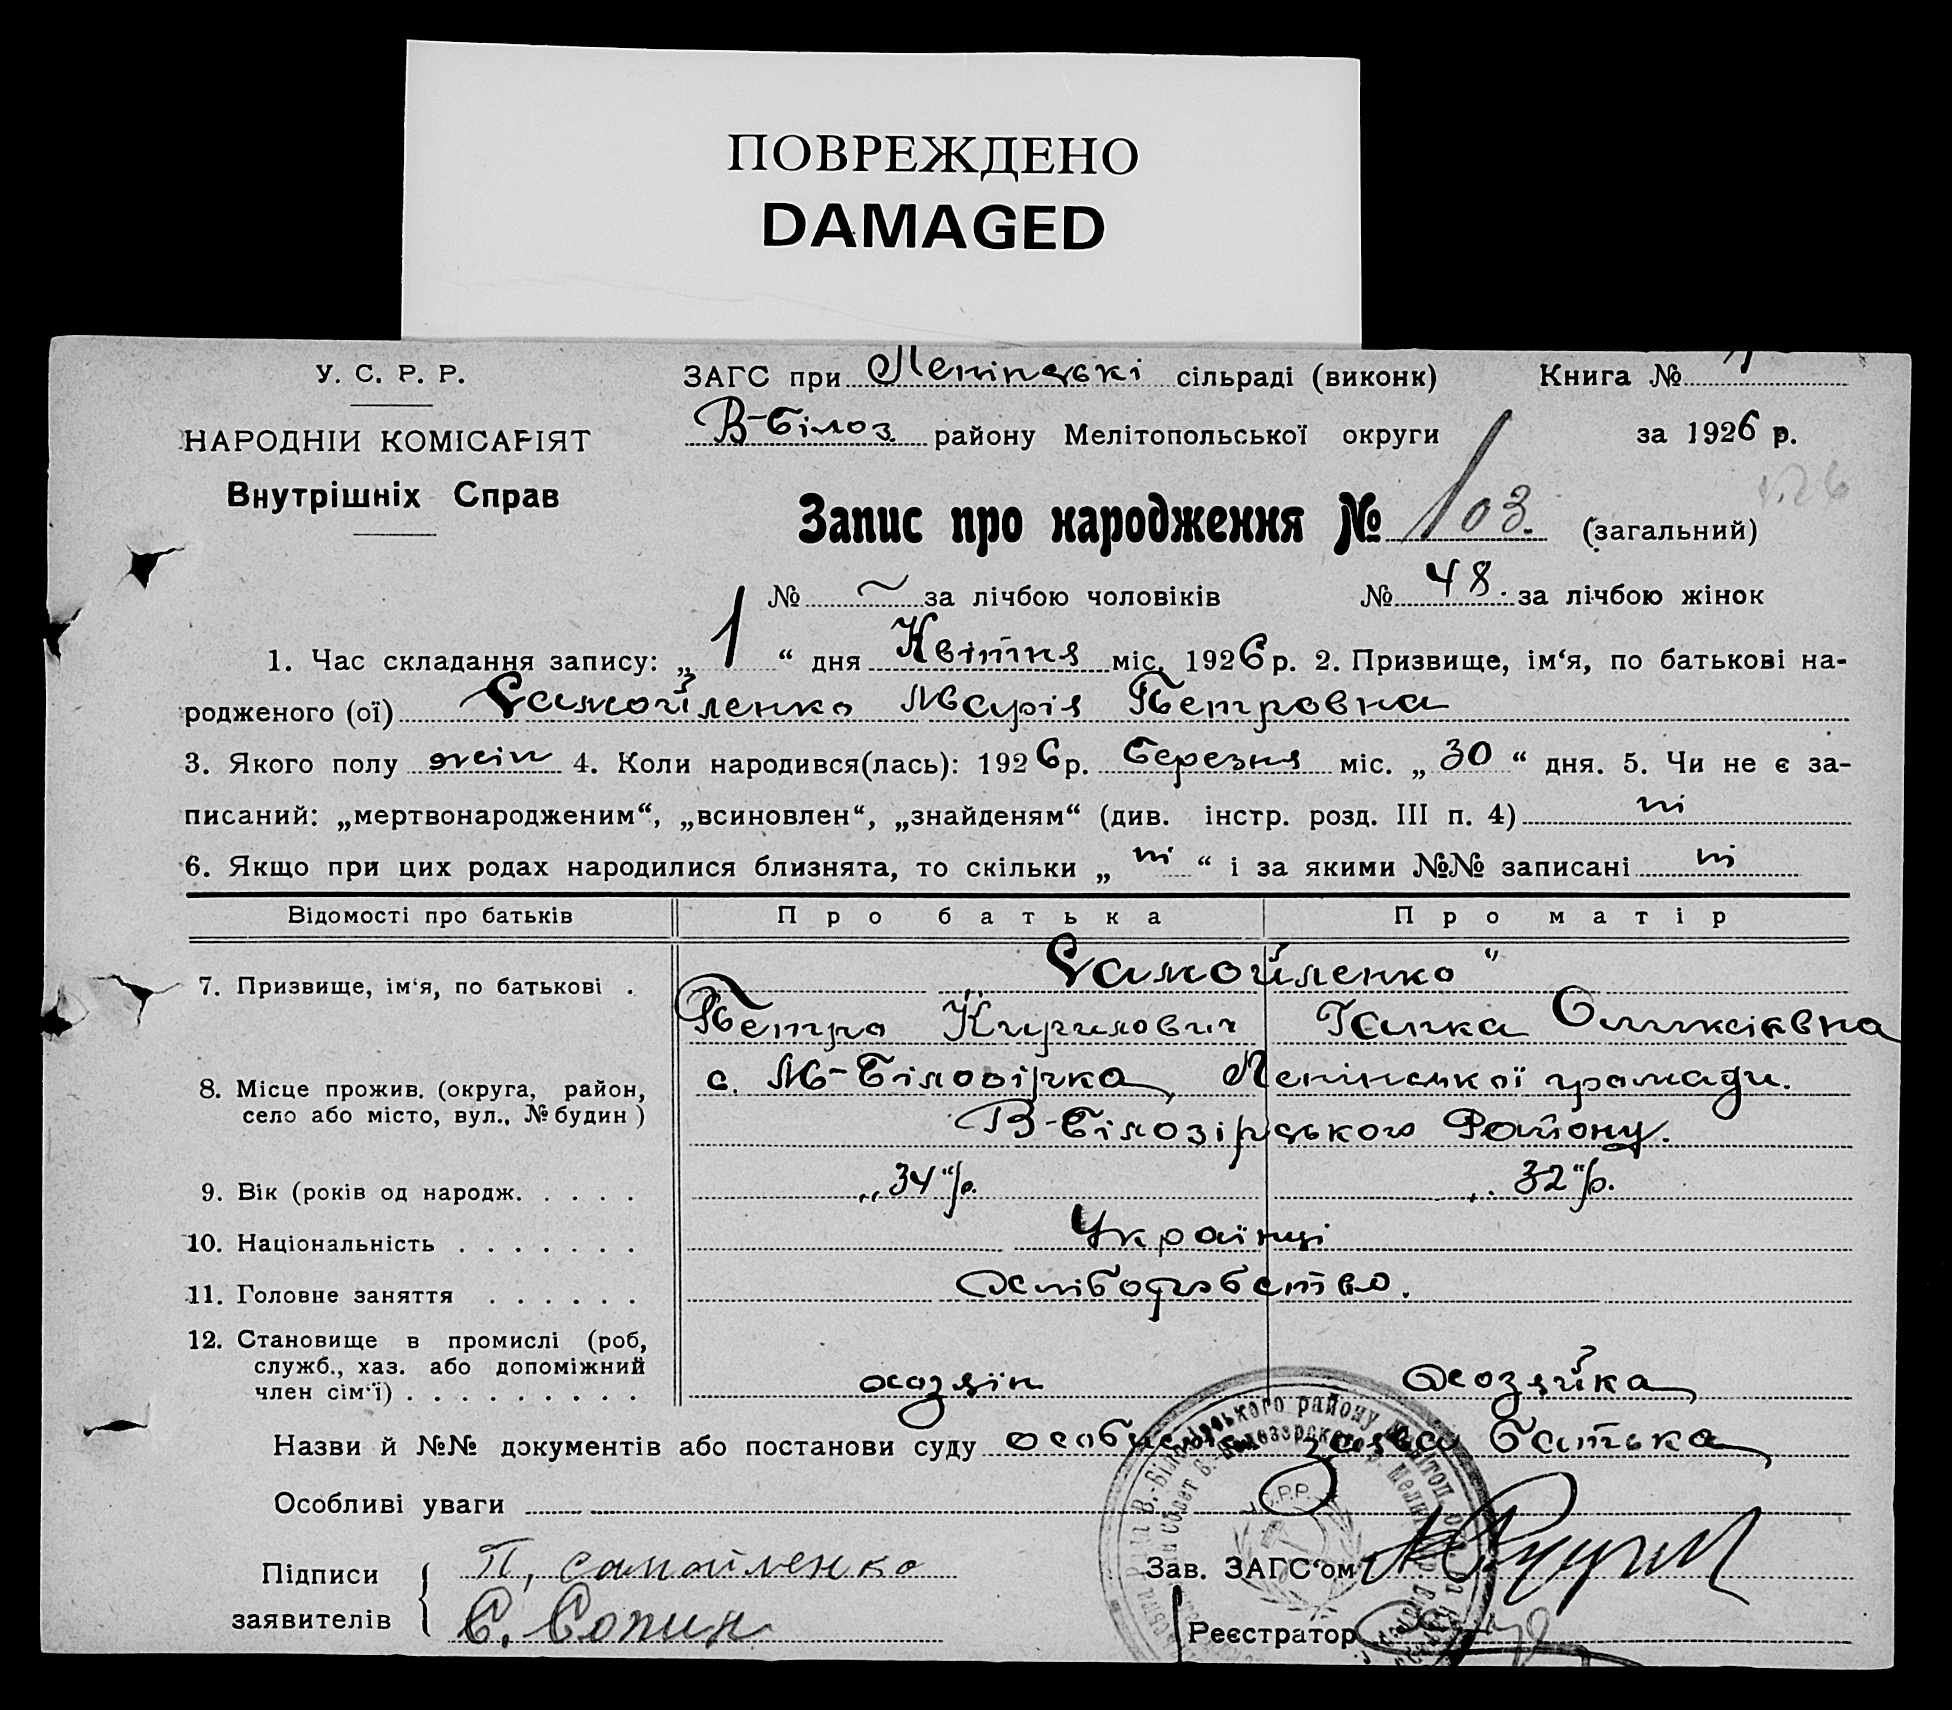 ПОВРЕЖДЕНО
DAMAGED
У. С. Р. Р.
ЗАГС при Ленінські сільраді (виконк) Книга №
НАРОДНІЙ КОМІСАРІЯТ
В-Білоз. району Мелітопольської округи за 1926 р.
Внутрішніх Справ
Запис про народження № 103. (загальний)
№ ~ за лічбою чоловіків № 48. за лічбою жінок
1. Час складання запису: „ 1 “ дня Квітня міс. 1926 р. 2. Призвище, ім‘я, по батькові на-
родженого (ої) Самойленко Марія Петровна
3. Якого полу жін 4. Коли народився(лась): 1926 р. Березня міс. „ 30 “ дня. 5. Чи не є за-
писаний: „мертвонародженим“, „всиновлен“, „знайденям“ (див. інстр. розд. III п. 4) ні
6. Якщо при цих родах народилися близнята, то скільки „ ні “ і за якими №№ записані ні
Відомості про батьків Про батька Про матір
7. Призвище, ім‘я, по батькові . Самойленко "
Петро Кирилович Ганка Оликсіївна
8. Місце прожив. (округа, район, с. М-Білозірка, Ленінської громади.
село або місто, вул., № будин ) В-Білозірського Району.
9. Вік (років од народж. . . . . „34“ р. „32“ р.
10. Національність . . . . . . . Українці
11. Головне заняття . . . . . . Хліборобство.
12. Становище в промислі (роб,
служб., хаз. або допоміжний
член сім‘ї) . . . . . . . . . . хозяїн Хозяйка
Назви й №№ документів або постанови суду особиста заява батька
Особливі уваги
Підписи П, самойленко Зав. ЗАГС‘ом
заявителів С. Сопин Реєстратор